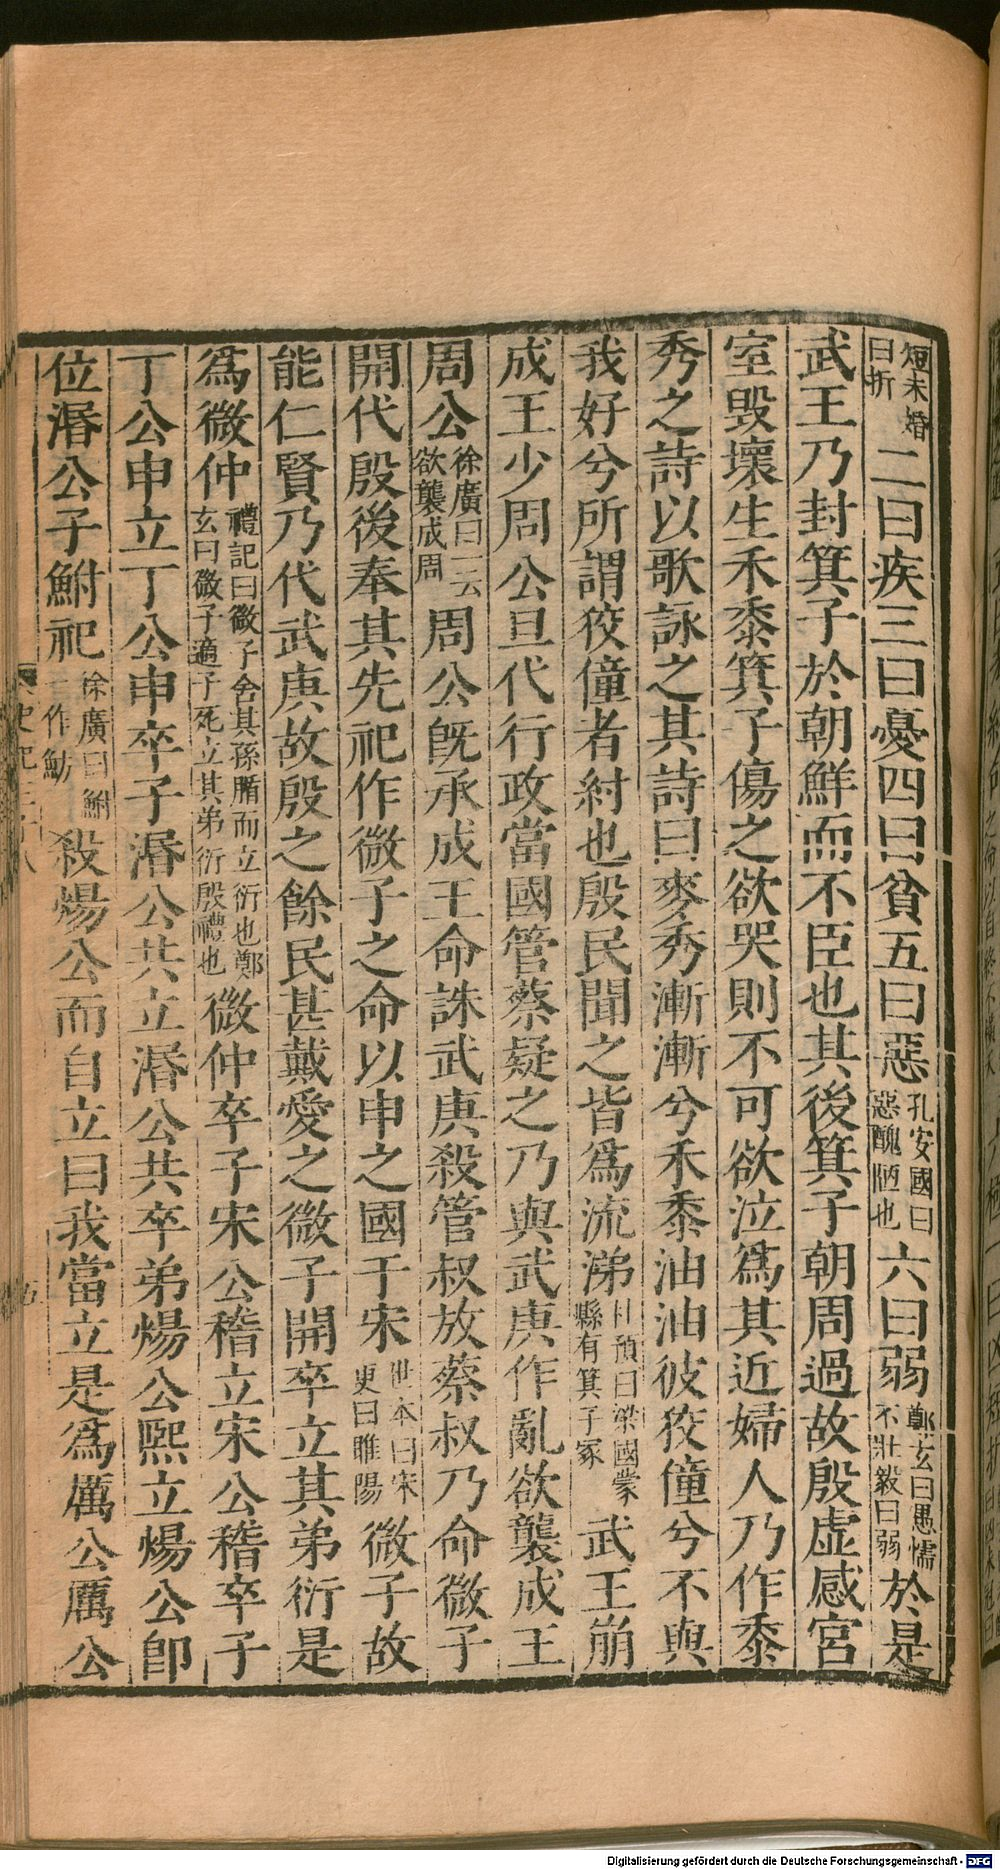 短未婚曰折二曰疾三曰憂四曰貧五曰惡孔安國曰惡醜陋也六曰弱鄭玄曰愚懦不壯毅曰弱於是
武王乃封箕子於朝鮮而不臣也其後箕子朝周過故殷虛感宮
室毀壞生禾黍箕子傷之欲哭則不可欲泣爲其近婦人乃作黍
秀之詩以歌詠之其詩曰麥秀漸漸兮禾黍油油彼狡僮兮不與
我好兮所謂狡僮者紂也殷民聞之皆爲流涕杜預曰梁國蒙縣有箕子冢武王崩
成王少周公旦代行政當國管蔡疑之乃與武庚作亂欲襲成王
周公徐廣曰一云欲襲成周周公旣承成王命誅武庚殺管叔放蔡叔乃命微子
開代殷後奉其先祀作微子之命以申之國于宋世本曰宋更曰睢陽微子故
能仁賢乃代武庚故殷之餘民甚戴愛之微子開卒立其弟衍是
爲微仲禮記曰微子舍其孫腯而立衍也鄭玄曰微子適子死立其弟衍殷禮也微仲卒子宋公稽立宋公稽卒子
丁公申立丁公申卒子湣公共立湣公共卒弟煬公熙立煬公卽
位湣公子鮒祀徐廣曰鮒一作魴殺煬公而自立曰我當立是爲厲公厲公
史記三十八
Digitalisierung gefördert durch die Deutsche Forschungsgemeinschaft - DFG